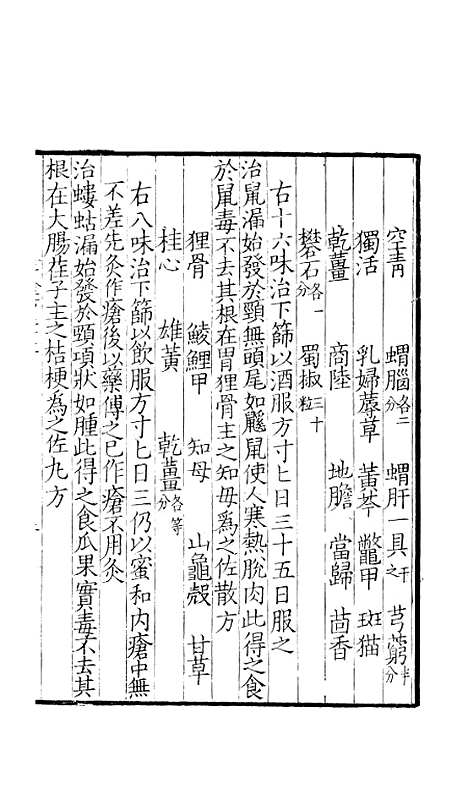 空青 蝟腦各二分 蝟肝一具干之 芎藭半分
獨活 乳婦蓐草 黃芩 鼈甲 斑猫
乾薑 商陸 地膽 當歸 茴香
礬石各一分 蜀椒三十粒
右十六味治下篩以酒服方寸匕日三十五日服之
治鼠漏始發於頸無頭尾如鼷鼠使人寒熱脫肉此得之食
於鼠毒不去其根在胃狸骨主之知母爲之佐散方
狸骨 鯪鯉甲 知母 山龜殼 甘草
桂心 雄黃 乾薑各等分
右八味治下篩以飲服方寸匕日三仍以蜜和內瘡中無
不差先灸作瘡後以藥傅之已作瘡不用灸
治螻蛄漏始發於頸項狀如腫此得之食瓜果實毒不去其
根在大腸荏子主之桔梗爲之佐九方